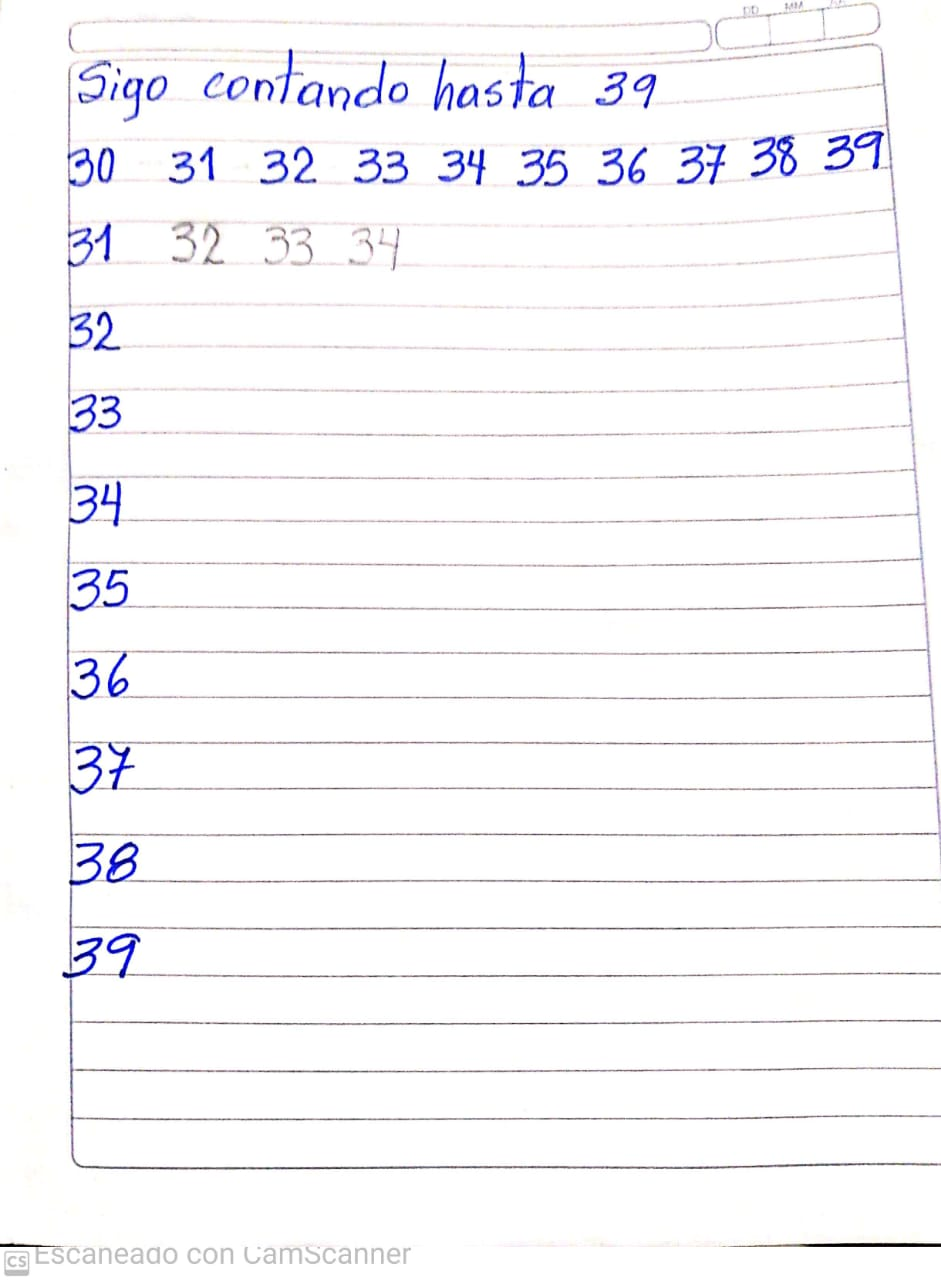 DD MM
Sigo contando hasta 39
30 31 32 33 34 35 36 37 38 39
31 32 33 34
32
33
34
35
36
37
38
39
CS Escaneado con CamScanner